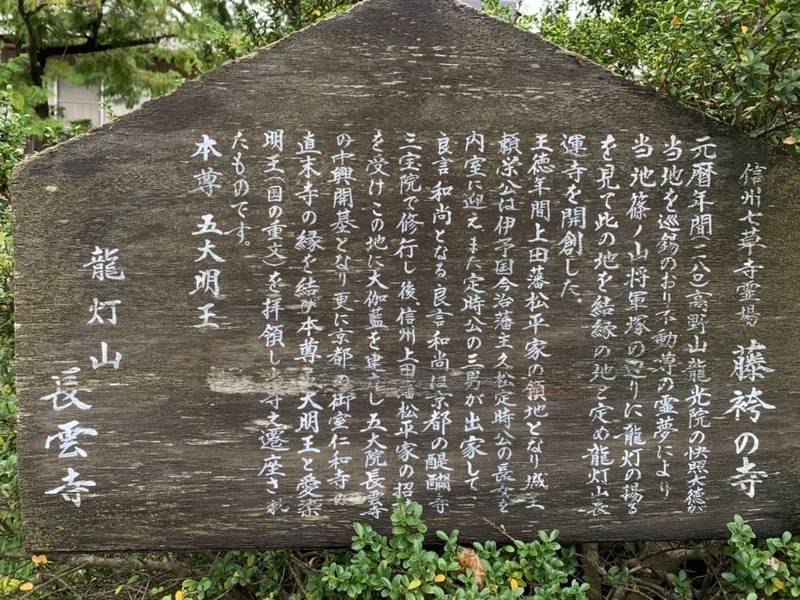 信州七草寺霊場 藤袴の寺
元暦年間(一一八四)高野山龍光院の快照大徳が
当地を巡錫のおり不動尊の霊夢により
当地篠ノ山将軍塚の辺りに龍灯の揚る
を見て此の地を結縁の地と定め龍灯山長
運寺を開創した。
王徳年間上田藩松平家の領地となり城主
頼栄公は伊予国今治藩主久松定時公の長女を
内室に迎えまた定時公の三男が出家して、
良言和尚となる良言和尚は京都の醍醐寺
三宝院で修行し後、信州上田藩松平家の招
を受けこの地に大伽藍を建立し五大院長雲寺
の中興開基となり更に京都の御室仁和寺の
直末寺の縁を結び本尊五大明王と愛染
明王(国の重文)を拝領し当寺え遷座され
たものです。
本尊 五大明王
龍灯山
長雲寺